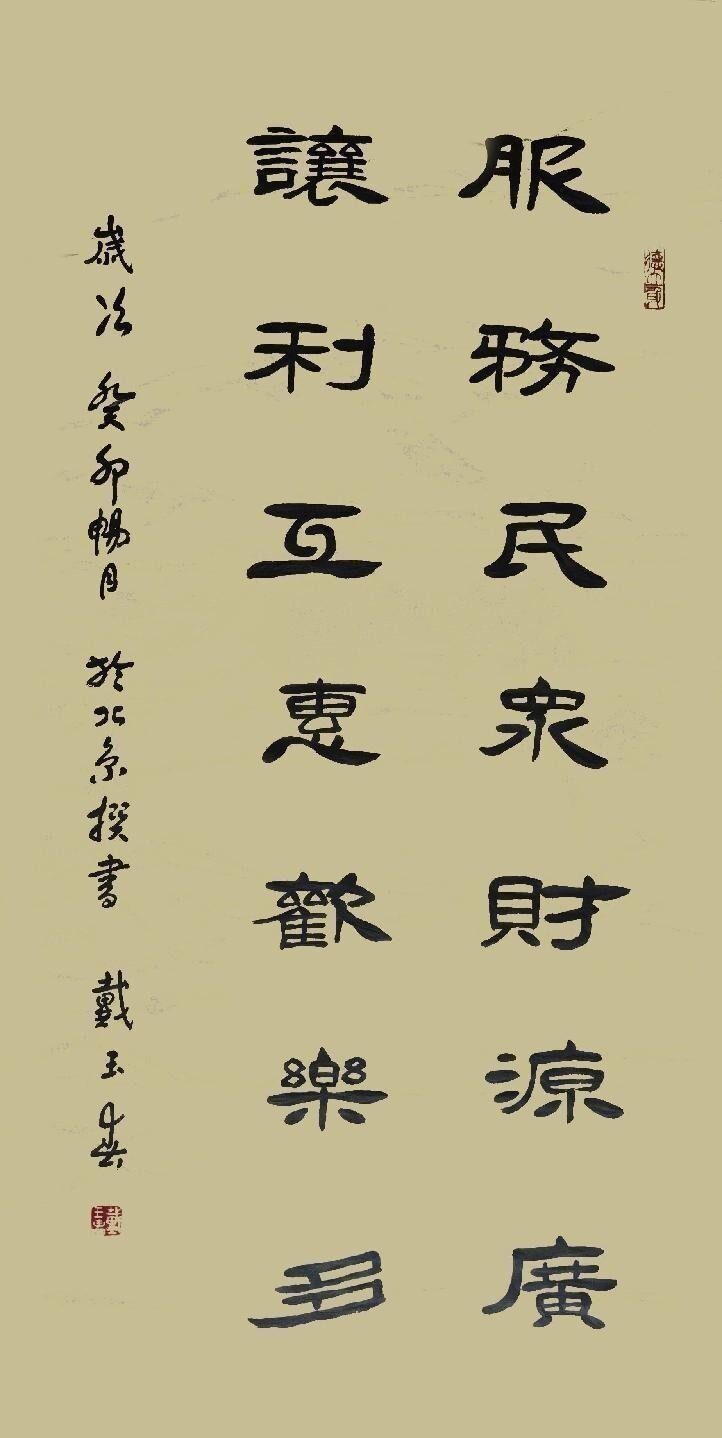 服務民衆財源廣
讓利互惠歡樂多
歲次癸卯暢月於北京撰書戴玉春